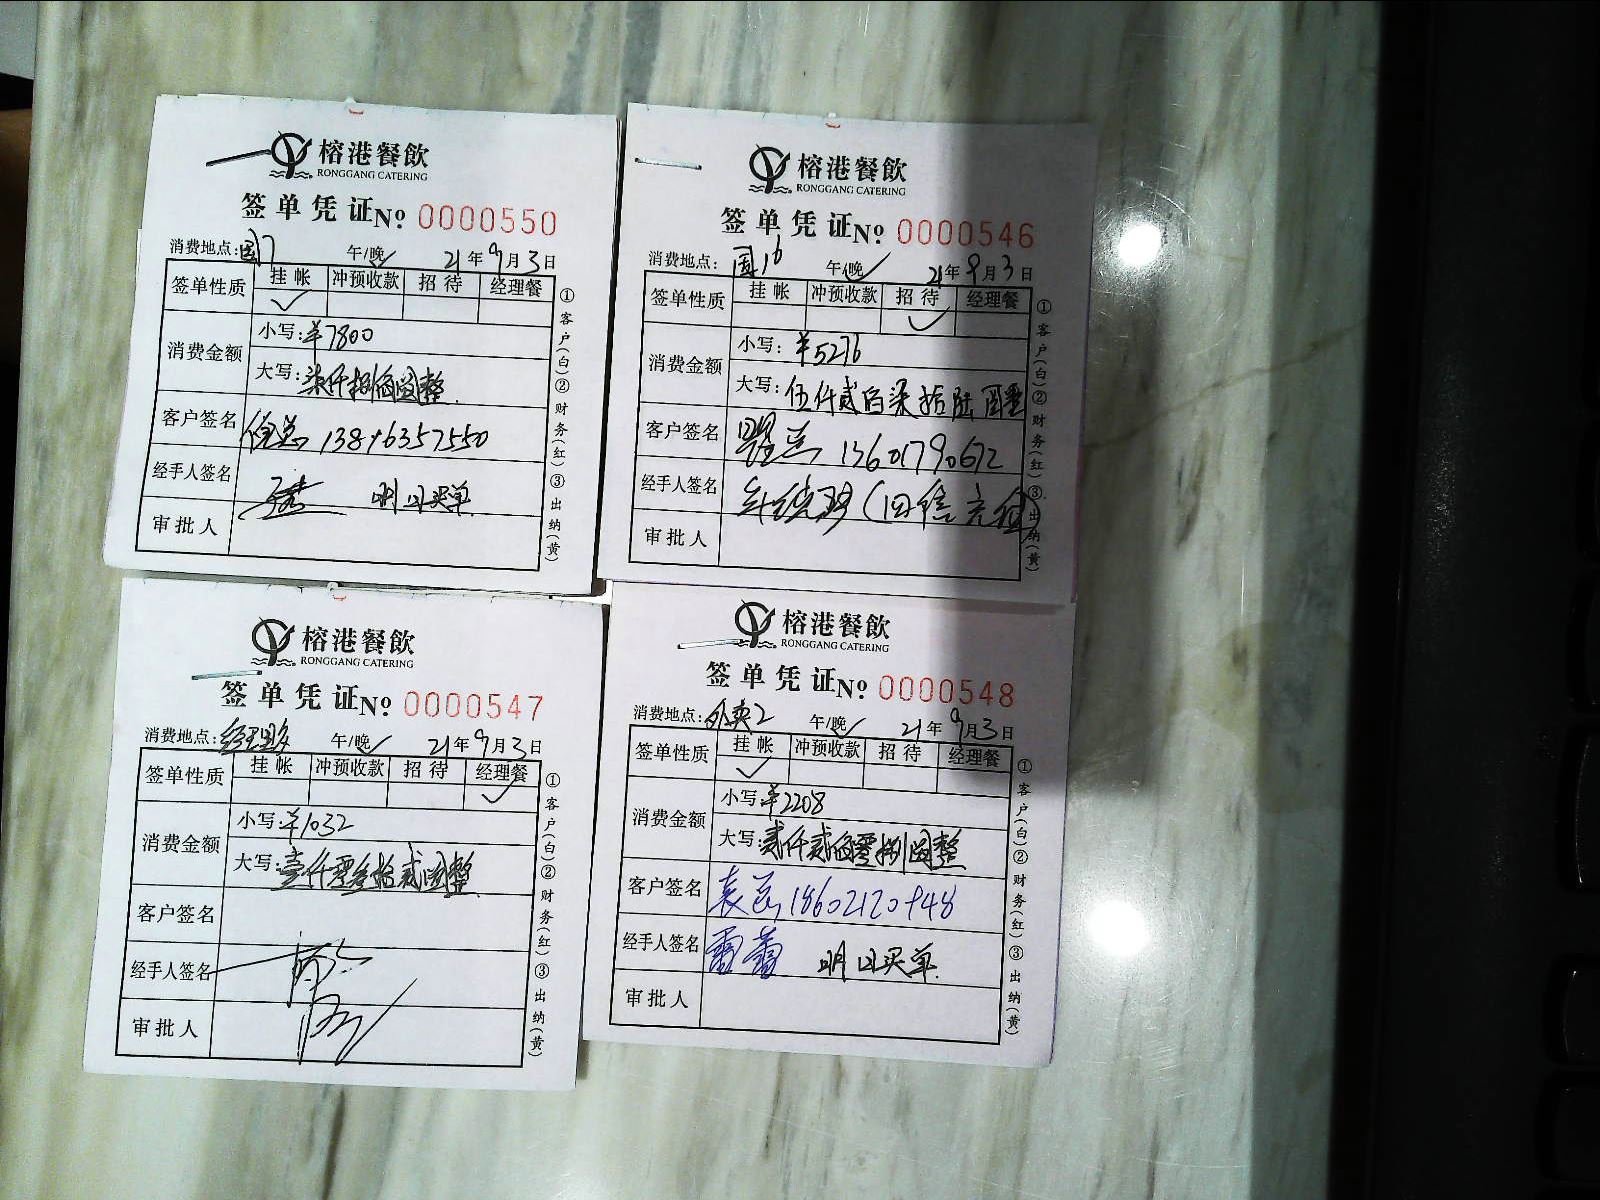 榕港餐飲
RONGGANG CATERING
签单凭证 No 0000550
消费地点:国17 午/晚 21年9月3日
签单性质 挂帐 冲预收款 招待 经理餐
消费金额 小写:¥7800
大写:柒仟捌佰圆整
客户签名 13816357550
经手人签名 明日买单
审批人
①客户(白)②财务(红)③出纳(黄)
榕港餐飲
RONGGANG CATERING
签单凭证 No 0000546
消费地点:国16 午/晚 21年9月3日
签单性质 挂帐 冲预收款 招待 经理餐
消费金额 小写:¥5276
大写:伍仟贰百柒拾陆圆整
客户签名 瞿总 13601790672
经手人签名
审批人
①客户(白)②财务(红)③出纳(黄)
榕港餐飲
RONGGANG CATERING
签单凭证 No 0000547
消费地点:经理餐 午/晚 21年9月3日
签单性质 挂帐 冲预收款 招待 经理餐
消费金额 小写:¥1032
大写:壹仟零叁拾贰圆整
客户签名
经手人签名
审批人
①客户(白)②财务(红)③出纳(黄)
榕港餐飲
RONGGANG CATERING
签单凭证 No 0000548
消费地点:外卖2 午/晚 21年9月3日
签单性质 挂帐 冲预收款 招待 经理餐
消费金额 小写:¥2208
大写:贰仟贰佰零捌圆整
客户签名 袁总 18602120948
经手人签名 雷蕾 明日买单
审批人
①客户(白)②财务(红)③出纳(黄)